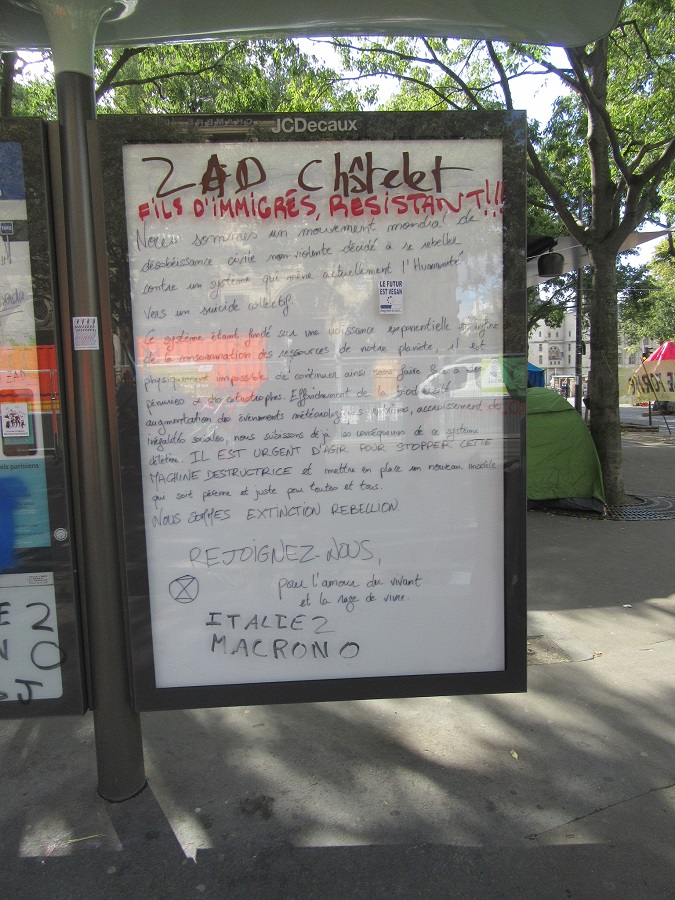 JCDecaux
ZAD Châtelet
FILS D'IMMIGRÉS, RESISTANT!!!
Nous sommes un mouvement mondial de
désobéissance civile non violente décidé à se rebeller
contre un système qui mène actuellement l'Humanité
vers un suicide collectif.
LE FUTUR
EST VEGAN
Ce système étant fondé sur une croissance exponentielle et infinie
de la consommation des ressources de notre planète, il est
physiquement impossible de continuer ainsi sans faire face à des
pénuries et des catastrophes. Effondrement de la biodiversité
augmentation des événements météorologiques extrêmes, accroissement des
inégalités sociales, nous subissons déjà les conséquences de ce système
délétère. IL EST URGENT D'AGIR POUR STOPPER CETTE
MACHINE DESTRUCTRICE et mettre en place un nouveau modèle
qui soit pérenne et juste pour toutes et tous.
NOUS SOMMES EXTINCTION REBELLION.
REJOIGNEZ-NOUS,
pour l'amour du vivant
et la rage de vivre.
ITALIE 2
MACRON 0
parisiens
E 2
N 0